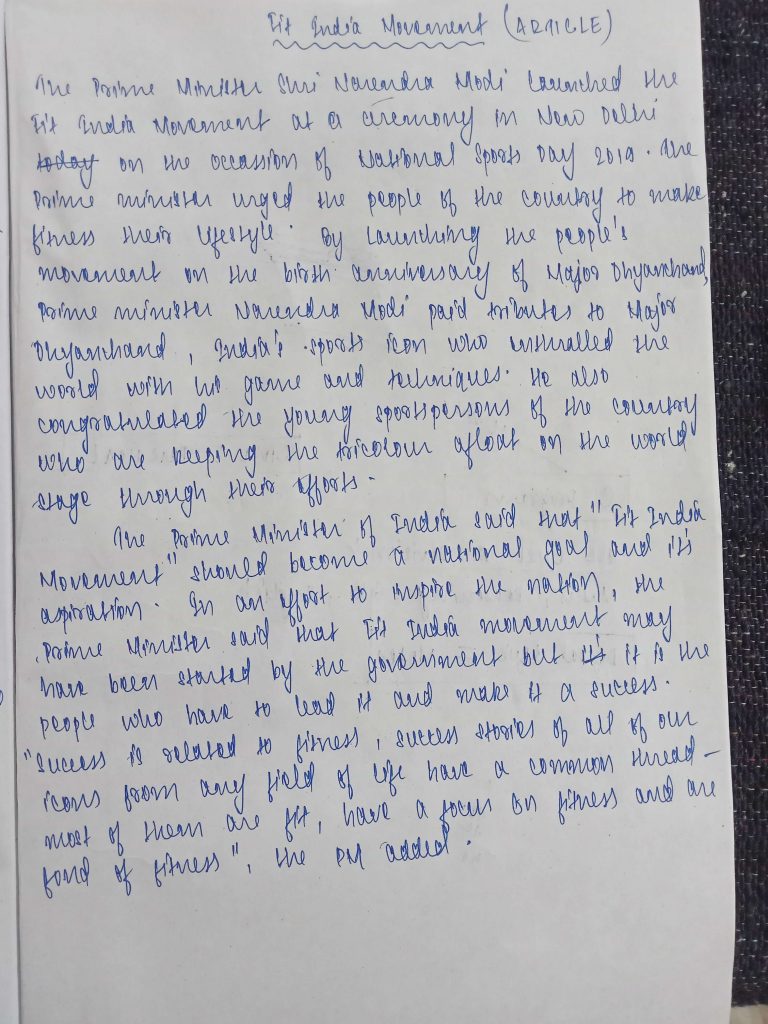 Fit India Movement (ARTICLE)
The Prime Minister Shri Narendra Modi launched the
Fit India Movement at a ceremony in New Delhi
today on the occassion of National Sports Day 2019. The
Prime minister urged the people of the country to make
fitness their lifestyle. By launching the people's
movement on the birth anniversary of Major Dhyanchand,
Prime minister Narendra Modi paid tributes to Major
Dhyanchand, India's sports icon who enthralled the
world with his game and techniques. He also
congratulated the young sportspersons of the country
who are keeping the tricolour afloat on the world
stage through their efforts.
The Prime Minister of India said that "Fit India
Movement" should become a national goal and it's
aspiration. In an effort to inspire the nation, the
Prime Minister said that Fit India movement may
have been started by the government but it's it is the
people who have to lead it and make it a success.
"Success is related to fitness, success stories of all of our
icons from any field of life have a common thread-
most of them are fit, have a focus on fitness and are
fond of fitness", the PM added.